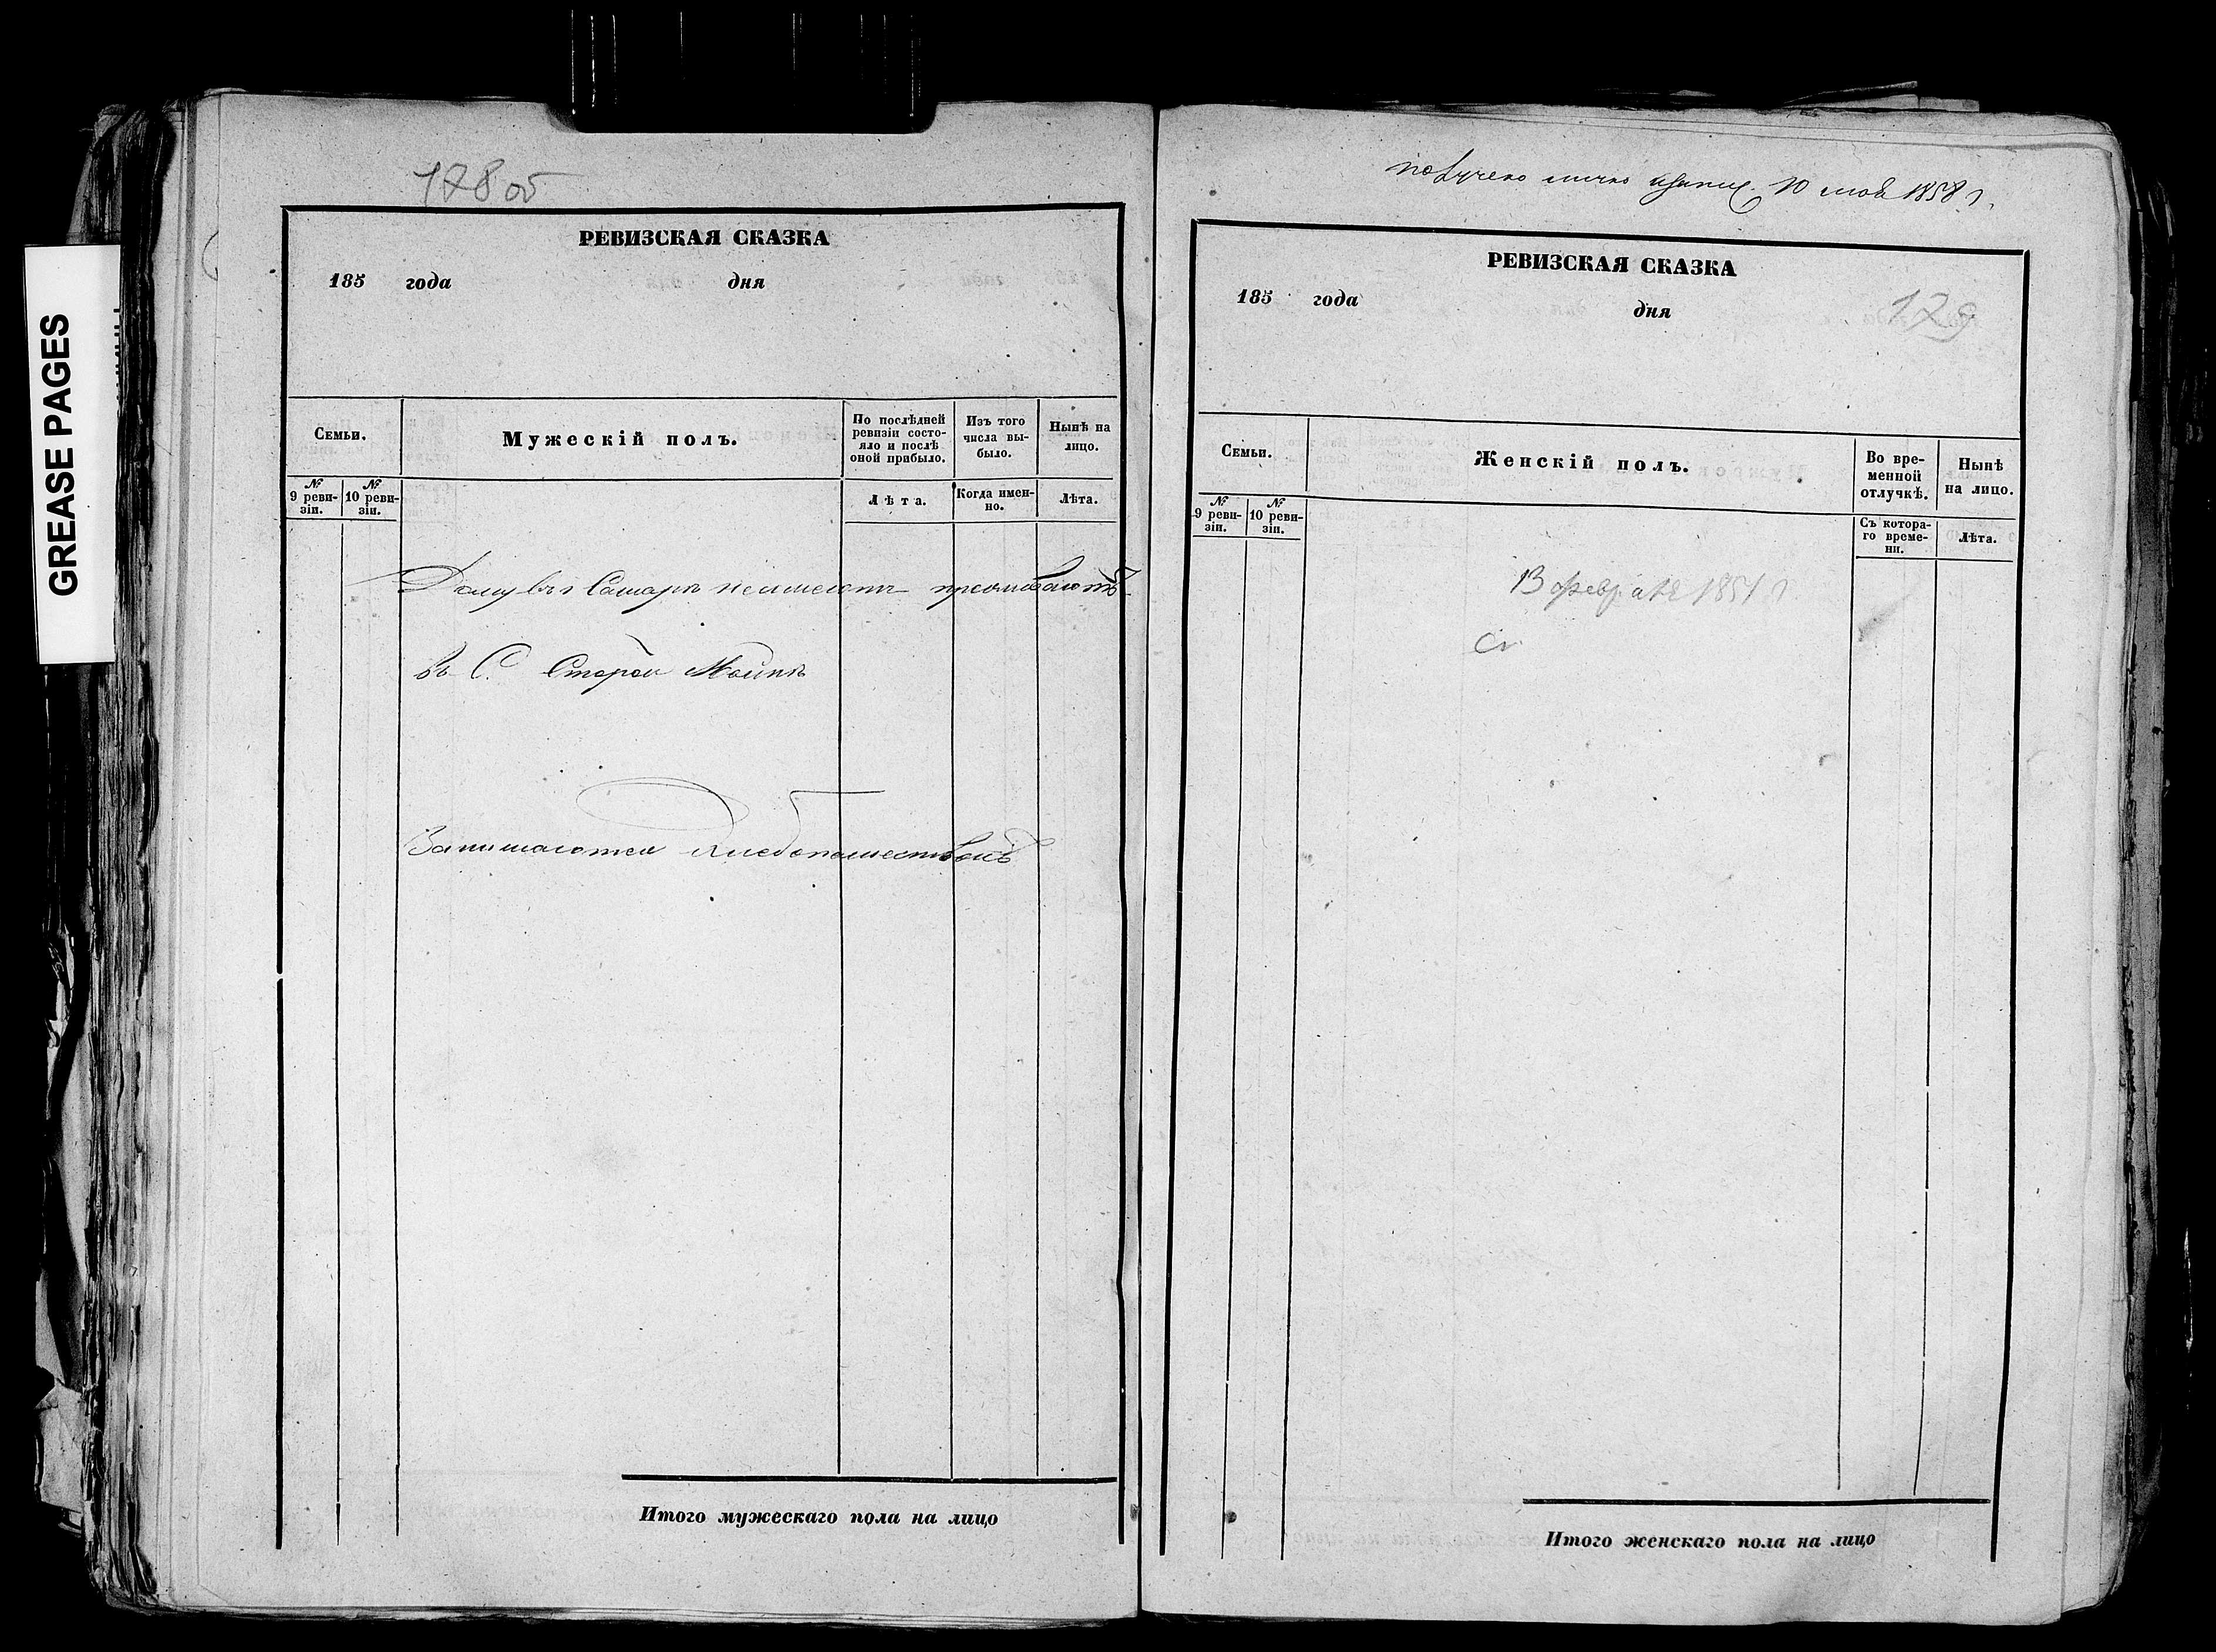 GREASE PAGES
178 об
РЕВИЗСКАЯ СКАЗКА
185 года дня
Семьи.
Мужескій полъ.
По послѣдней ревизіи состо-
яло и послѣ
оной прибыло.
Изъ того
числа вы-
было.
Нынѣ на
лицо.
№
9 реви-
зіи.
№
10 реви-
зіи.
Лѣта.
Когда имен-
но.
Лѣта.
Дому въ Самарѣ неимеютъ проживаютъ
въ С. Старой Маинѣ
Занимаются хлебопашествомъ
Итого мужескаго пола на лицо
получено лично 10 мая 1858 г.
РЕВИЗСКАЯ СКАЗКА
185 года дня
179
Семьи.
Женскій полъ.
Во вре-
менной
отлучкѣ.
Нынѣ
на лицо.
№
9 реви-
зіи.
№
10 реви-
зіи.
Съ котора-
го време-
ни.
Лѣта.
13 февраля 1851 г
Итого женскаго пола на лицо